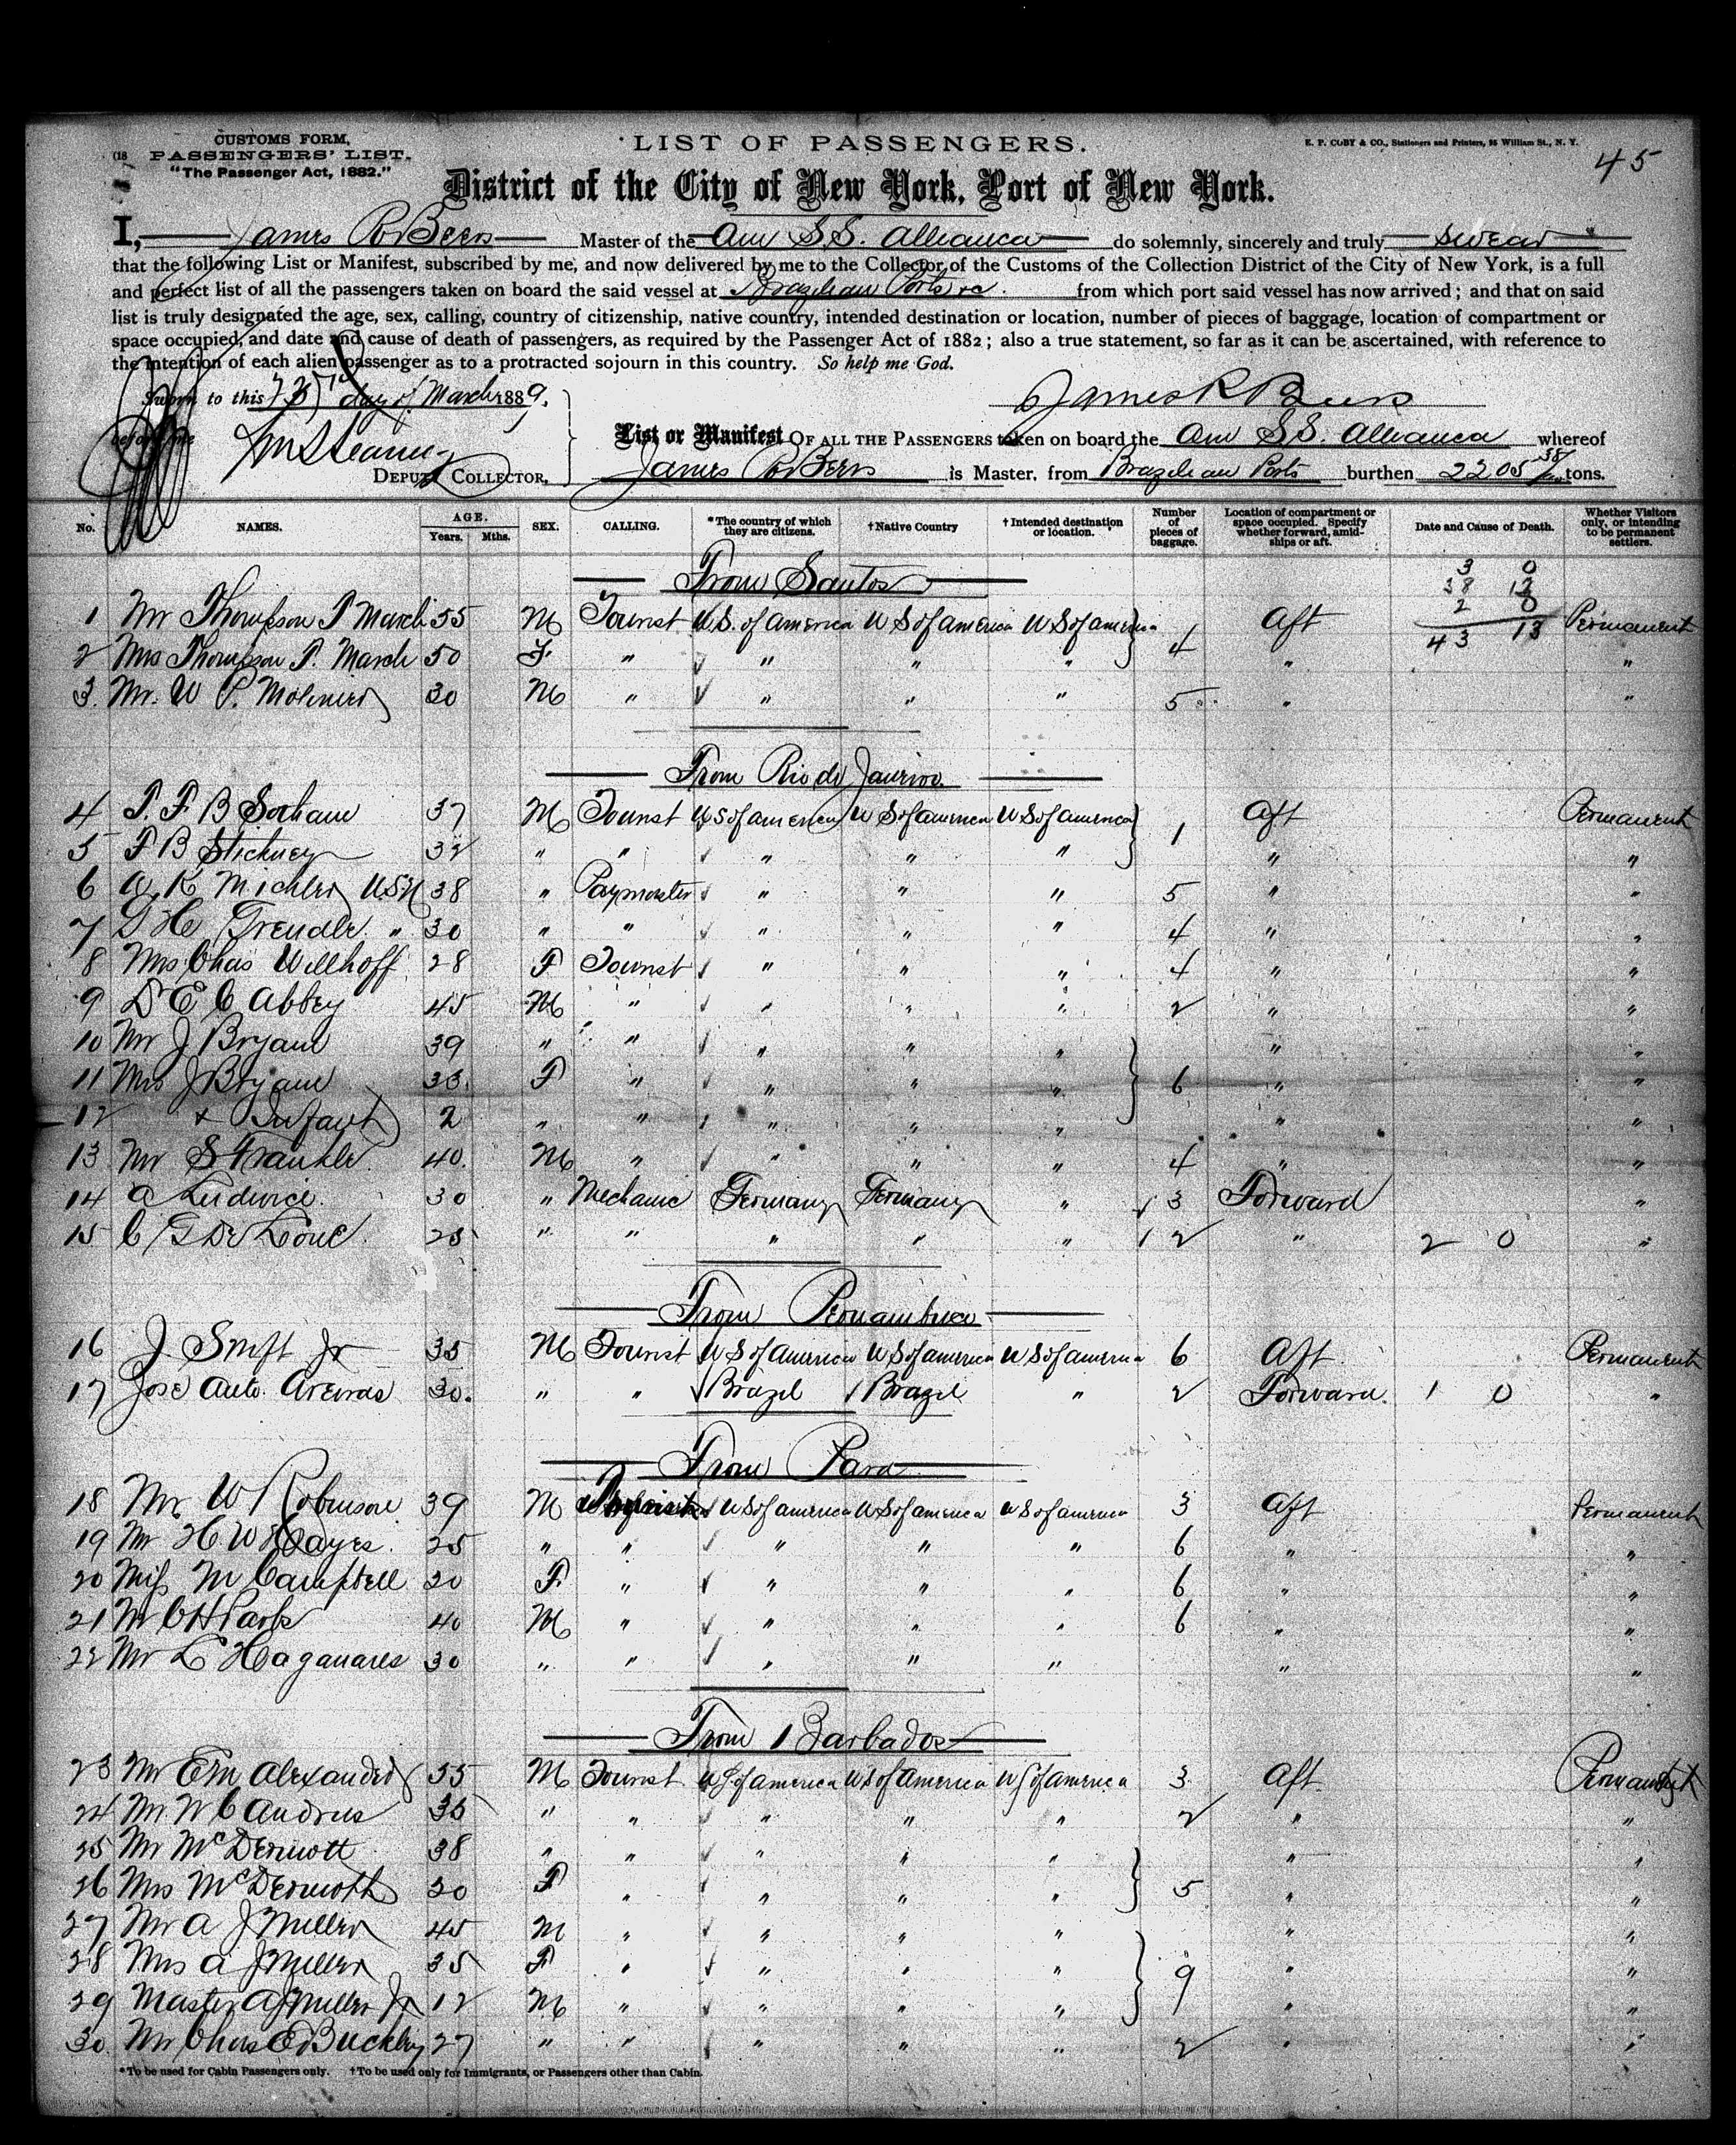 CUSTOMS FORM,
PASSENGERS' LIST.
"The Passenger Act, 1882."
LIST OF PASSENGERS.
E. P. COBY & CO., Stationers and Printers, 95 William St., N. Y.
45
District of the City of New York, Port of New York.
I, James R Beers Master of the Am S.S. Allianca do solemnly, sincerely and truly swear
that the following List or Manifest, subscribed by me, and now delivered by me to the Collector of the Customs of the Collection District of the City of New York, is a full
and perfect list of all the passengers taken on board the said vessel at Brazilian Ports &c. from which port said vessel has now arrived; and that on said
list is truly designated the age, sex, calling, country of citizenship, native country, intended destination or location, number of pieces of baggage, location of compartment or
space occupied, and date and cause of death of passengers, as required by the Passenger Act of 1882; also a true statement, so far as it can be ascertained, with reference to
the intention of each alien passenger as to a protracted sojourn in this country. So help me God.
Sworn to this day of March 1889.
James R Beers
before me
List or Manifest OF ALL THE PASSENGERS taken on board the Am S.S. Allianca whereof
DEPUTY COLLECTOR.
James R Beers is Master, from Brazilian Ports burthen 2205 38/100 tons.
No. NAMES. AGE. Years. Mths. SEX. CALLING. *The country of which they are citizens. †Native Country †Intended destination or location. Number of pieces of baggage. Location of compartment or space occupied. Specify whether forward, amidships or aft. Date and Cause of Death. Whether Visitors only, or intending to be permanent settlers.
From Santos
3 0
38 13
2 0
43 13
1 Mr Thompson P March 55 M Tourist U.S. of America U S of America U S of America Aft Permanent
2 Mrs Thompson P. March 50 F. " " " " 4 " "
3. Mr. W P. 30 M " " " " 5 " "
From Rio de Janeiro
4 P. F B Sorham 37 M Tourist U S of America U S of America U S of America 1 Aft Permanent
5 F B Stickney 32 " " " " " " "
6 A K Michler USN 38 " Paymaster " " " 5 " "
7 G H " 30 " " " " " 4 " "
8 Mrs Chas Willhoff 28 F Tourist " " " 4 " "
9 D E C Abbey 45 M " " " " 2 " "
10 Mr J Bryan 39 " " " " " " "
11 Mrs J Bryan 33. F " " " " 6 " "
12 & Infant 2 " " " " " " "
13 Mr S Frankle 40. M " " " " 4 " "
14 A Ludwice 30 " Mechanic Germany Germany " 3 Forward "
15 C G De 25 " " " " " 2 " 2 0 "
From Pernambuco
16 J. Swift Jr 35 M Tourist U S of America U S of America U S of America 6 Aft Permanent
17 Jose Anto. Areiras 30. " " Brazil Brazil " 2 Forward. 1 0 "
From Para
18 Mr. W Robinson 39 M Tourist U S of America U S of America U S of America 3 Aft Permanent
19 Mr H. W Hayes. 25 " " " " " 6 " "
20 Miss M Campbell 20 F. " " " " 6 " "
21 Mr C H Parks 40 M " " " " 6 " "
22 Mr L Haganares 30 " " " " " " "
From Barbados
23 Mr E M Alexander 55 M Tourist U S of America U S of America U S of America 3 Aft Permanent
24 Mr W C Andrus 35 " " " " " 2 " "
25 Mr McDermott 38 " " " " " " "
26 Mrs McDermott 30 F " " " " 5 " "
27 Mr A J Miller 45 M " " " " " "
28 Mrs A J Miller 35 F " " " " 9 " "
29 Master A J Miller Jr 12 M " " " " " "
30. Mr Chas E Buckley 27 " " " " " 2 " "
*To be used for Cabin Passengers only. †To be used only for Immigrants, or Passengers other than Cabin.